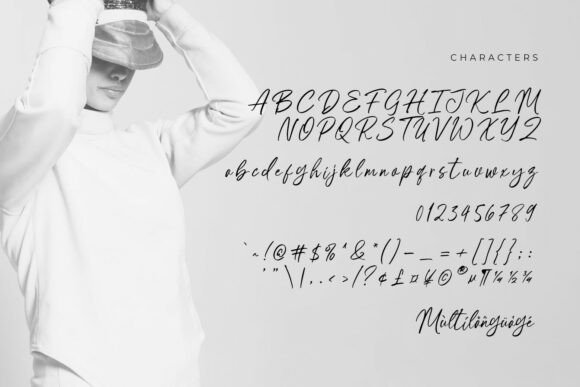 CHARACTERS
ABCDEFGHIJKLM
NOPQRSTUVWXYZ
abcdefghijklmnopqrstuvwxyz
0123456789
`~!@#$%^&*()-_=+[]{};:
'"\|,.<>/?¢£¤¥©®µ¶¼½¾
Mùltílåñgüàgé